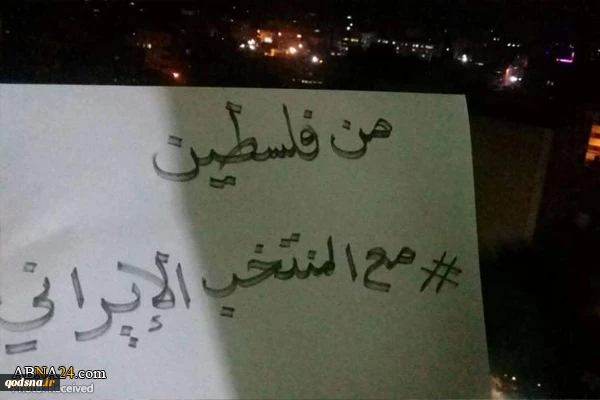 من فلسطين
#مع المنتخب الإيراني
ABNA24.com
qodsna.ir
Photo: Received